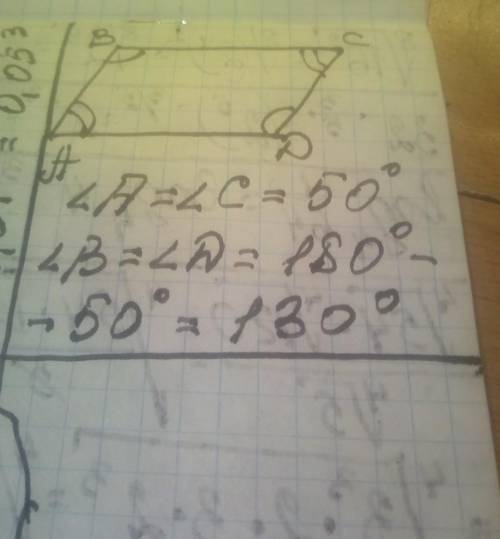 = 0,053
B C
A D
∠A = ∠C = 50°
∠B = ∠D = 180° -
- 50° = 130°